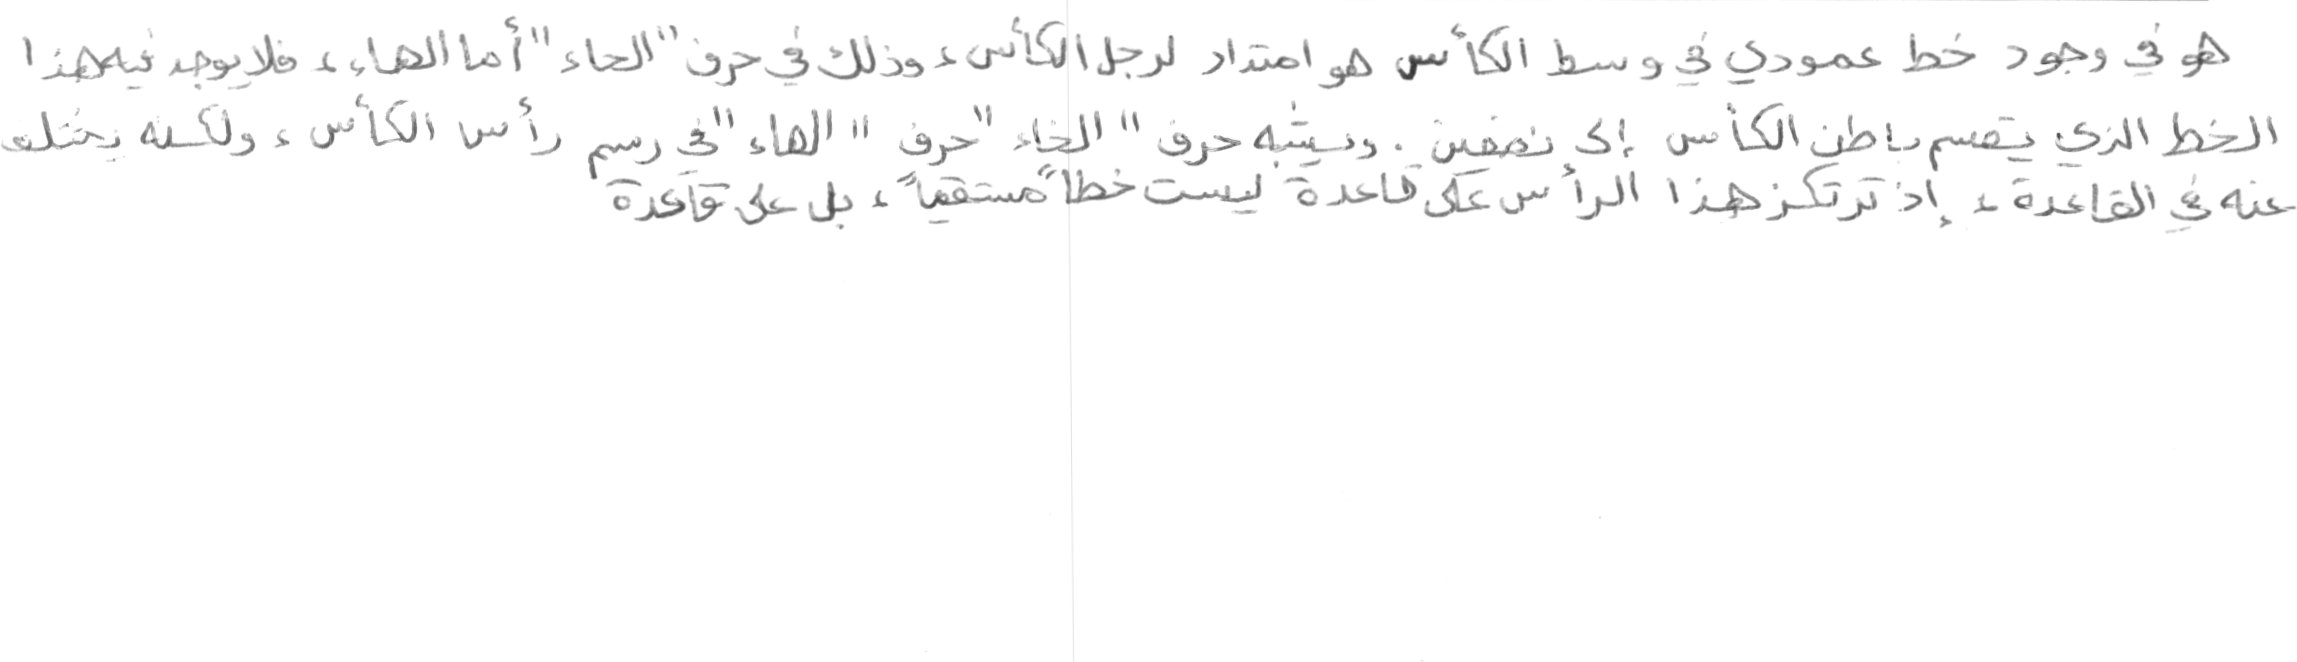 هو في وجود خط عمودي في وسط الكأس هو امتداد لرجل الكأس، وذلك في حرف "الحاء" أما الهاء، فلا يوجد فيه هذا
الخط الذي يقسم باطن الكأس إلى نصفين. ويشبه حرف "الخاء" حرف "الهاء" في رسم رأس الكأس، ولكنه يختلف
عنه في القاعدة، إذ ترتكز هذا الرأس على قاعدة ليست خطاً مستقيماً، بل على قاعدة